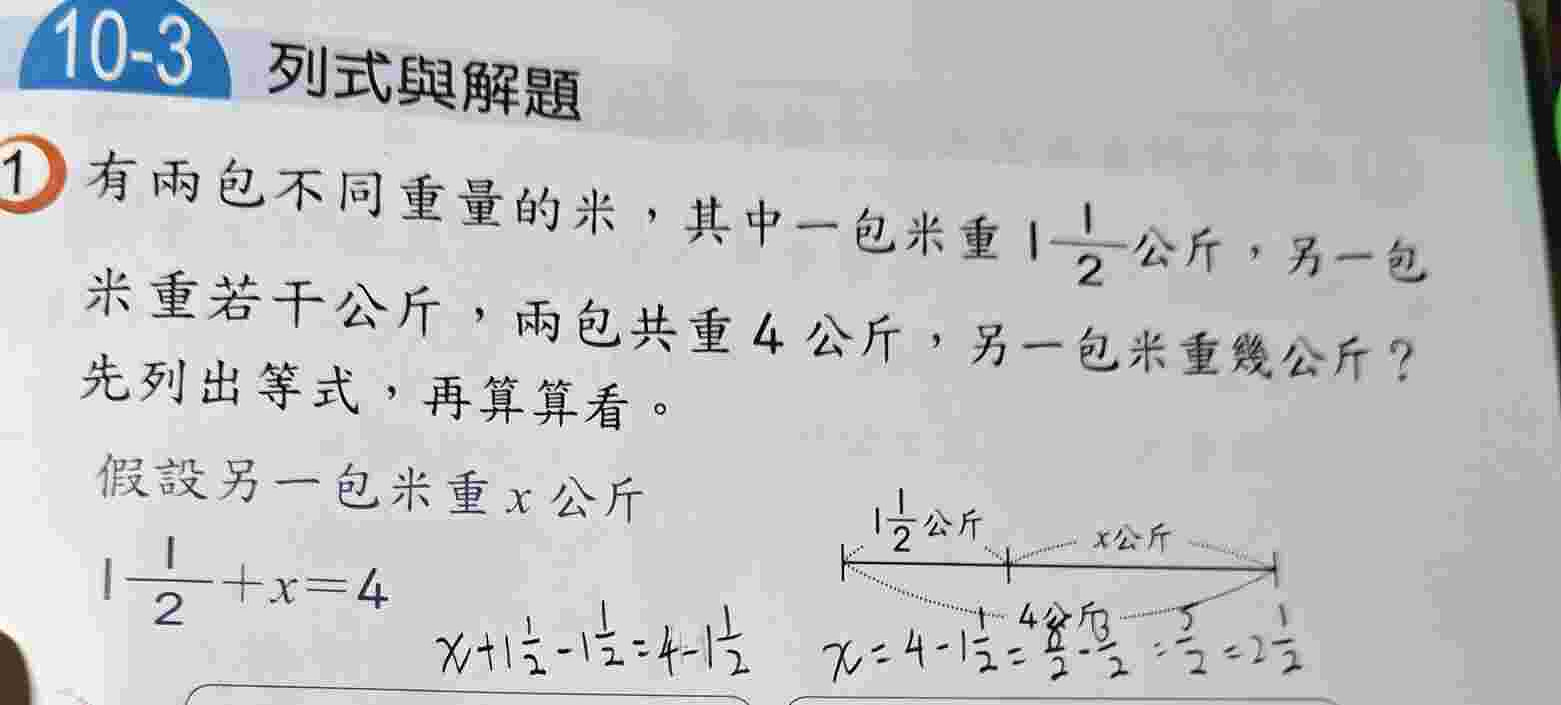 10-3 列式與解題
1 有兩包不同重量的米，其中一包米重 1 1/2 公斤，另一包
米重若干公斤，兩包共重 4 公斤，另一包米重幾公斤？
先列出等式，再算算看。
假設另一包米重 x 公斤
1 1/2 公斤 x公斤
1 1/2 + x = 4
4公斤
x + 1 1/2 - 1 1/2 = 4 - 1 1/2
x = 4 - 1 1/2 = 8/2 - 3/2 = 5/2 = 2 1/2